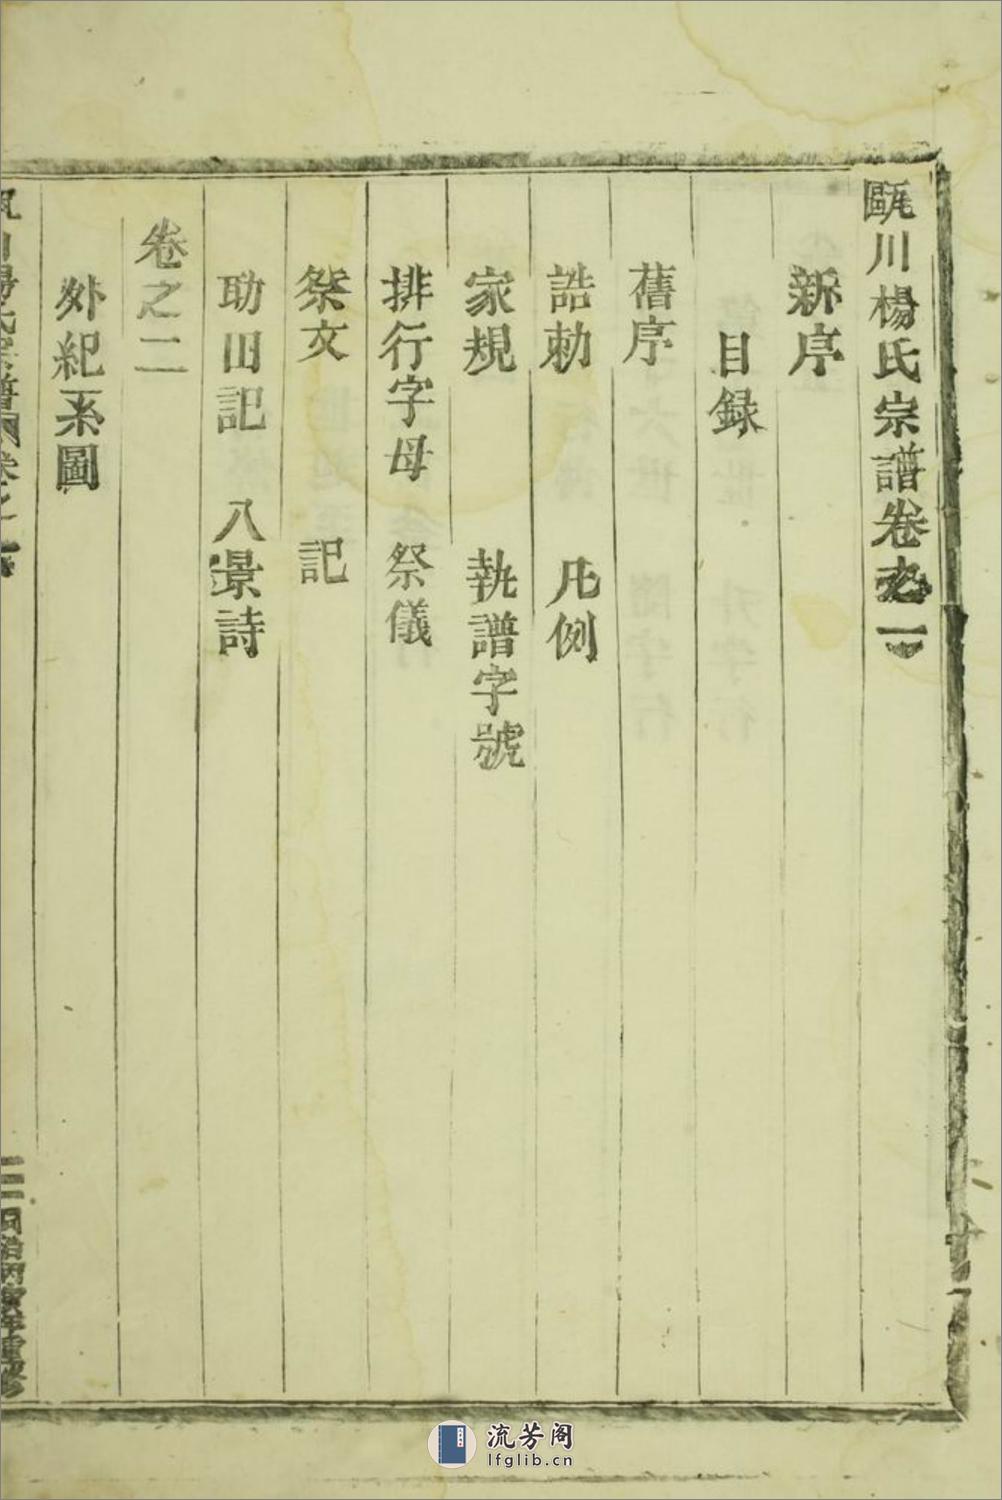 甌川楊氏宗譜卷之一
目録
新序
舊序
誥勅 凡例
家規 執譜字號
排行字母 祭儀
祭文 記
助田記 八景詩
卷之二
外紀系圖
二 同治丙寅年重修
流芳阁
lfglib.cn